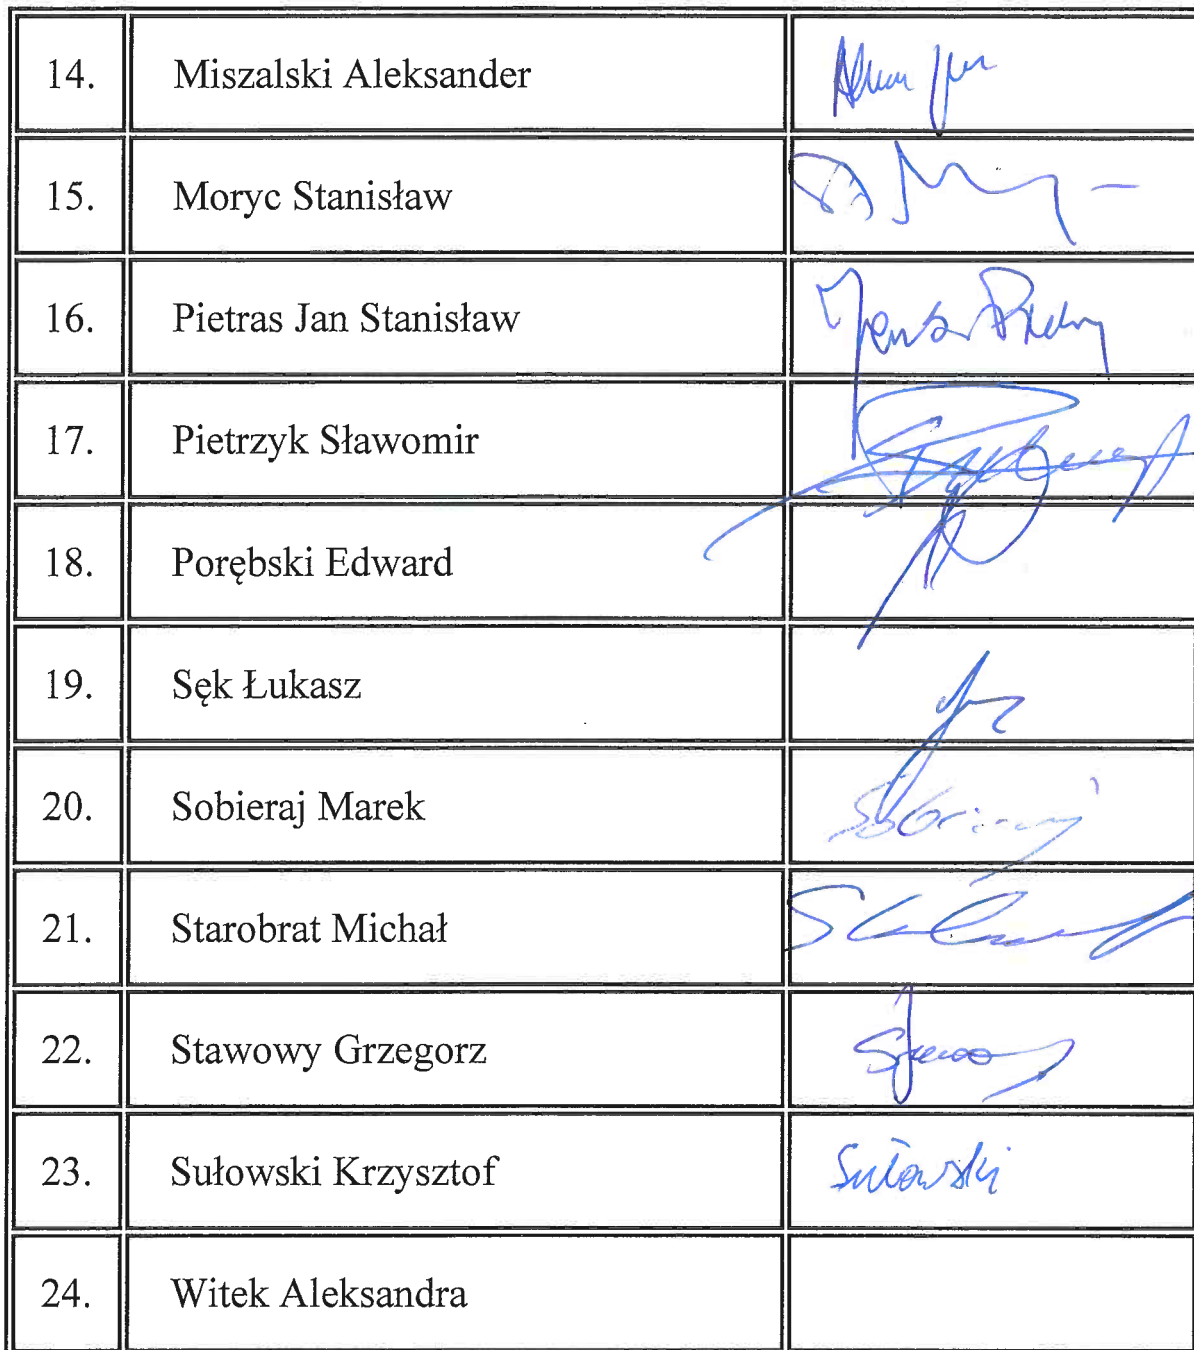 14. Miszalski Aleksander
15. Moryc Stanisław
16. Pietras Jan Stanisław
17. Pietrzyk Sławomir
18. Porębski Edward
19. Sęk Łukasz
20. Sobieraj Marek
21. Starobrat Michał
22. Stawowy Grzegorz
23. Sułowski Krzysztof Sułowski
24. Witek Aleksandra